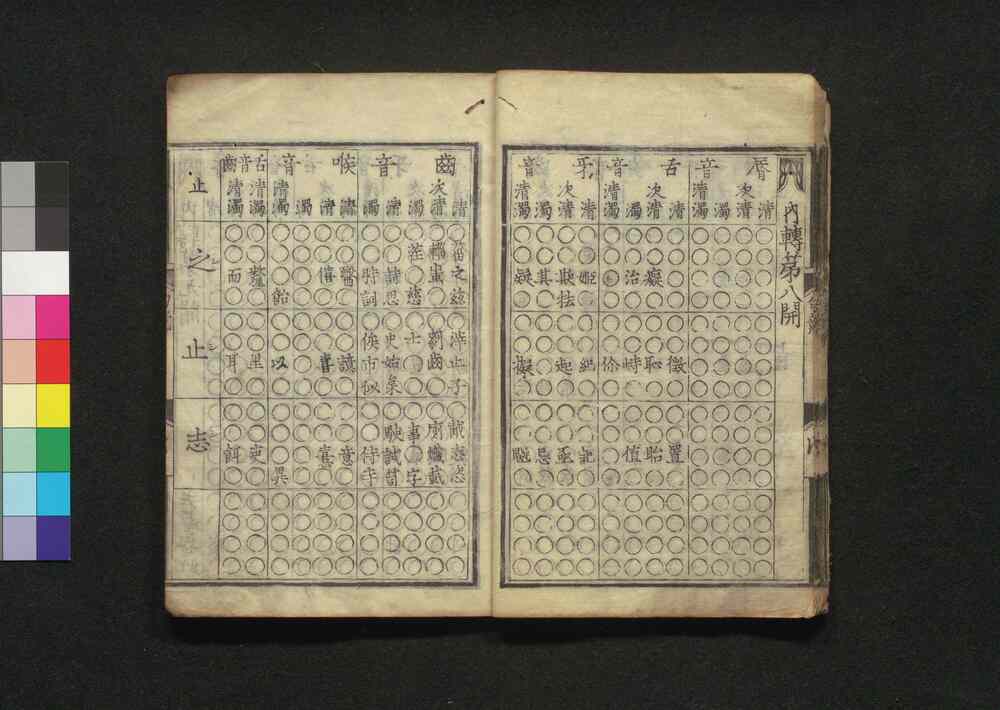 内轉第八開
脣音
清
次清
濁
清濁
舌音
清 徵 置
次清 癡 恥 眙
濁 治 峙 值
清濁 伱
牙音
清 姬 紀 記
次清 欺抾 起 亟
濁 其 忌
清濁 疑 擬
齒音
清 菑之兹 滓止子 胾志
次清 蚩 齒 廁熾
濁 茬慈 士 事字
清 詩思 史始枲 駛試笥
濁 時詞 俟市似 侍寺
喉音
清 醫 譩 意
清 僖 喜 憙
濁
清濁 飴 以 異
舌音齒
清濁 釐 里 吏
清濁 而 耳 餌
止
之
止
志